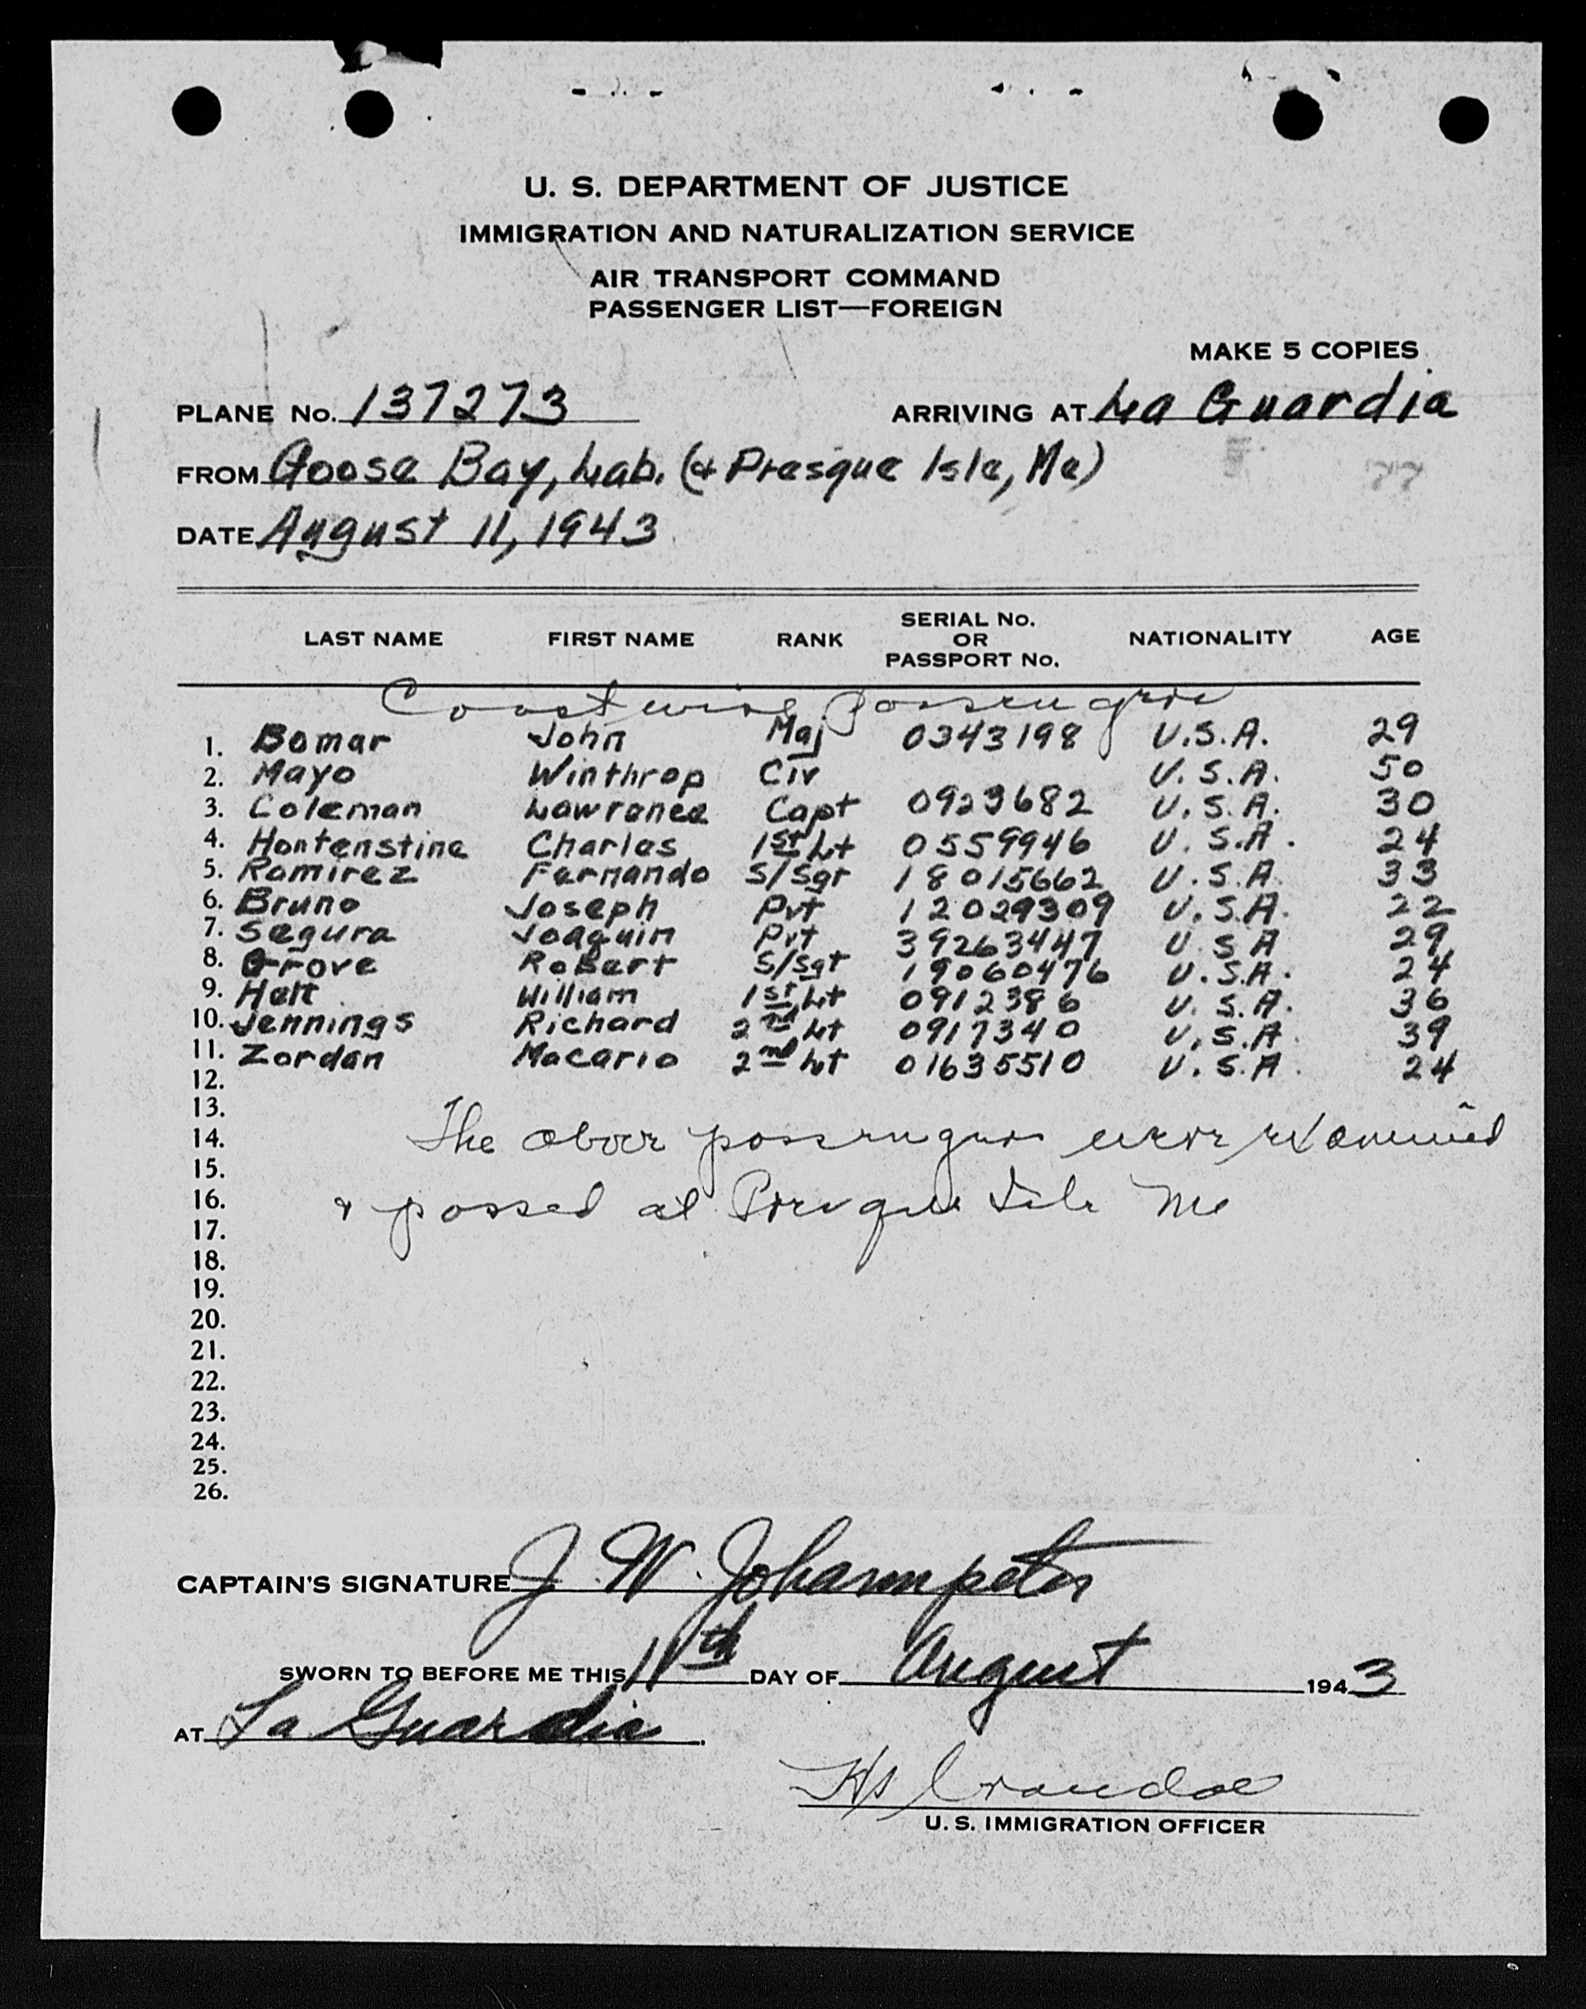 U. S. DEPARTMENT OF JUSTICE
IMMIGRATION AND NATURALIZATION SERVICE
AIR TRANSPORT COMMAND
PASSENGER LIST—FOREIGN
MAKE 5 COPIES
PLANE No. 137273 ARRIVING AT La Guardia
FROM Goose Bay, Lab. (& Presque Isle, Me)
DATE August 11, 1943
LAST NAME FIRST NAME RANK SERIAL No. OR PASSPORT No. NATIONALITY AGE
Coastwise Passengers
1. Bomar John Maj 0343198 U.S.A. 29
2. Mayo Winthrop Civ U.S.A. 50
3. Coleman Lawrence Capt 0923682 U.S.A. 30
4. Hontenstine Charles 1st Lt 0559946 U.S.A. 24
5. Ramirez Fernando S/Sgt 18015662 U.S.A. 33
6. Bruno Joseph Pvt 12029309 U.S.A. 22
7. Segura Joaquin Pvt 39263447 U S A 29
8. Grove Robert S/Sgt 19060476 U.S.A. 24
9. Helt William 1st Lt 0912386 U.S.A. 36
10. Jennings Richard 2nd Lt 0917340 U.S.A. 39
11. Zordan Macario 2nd Lt 01635510 U.S.A. 24
12.
13.
14. The above passengers were examined
15.
16. & passed at Presque Isle Me
17.
18.
19.
20.
21.
22.
23.
24.
25.
26.
CAPTAIN'S SIGNATURE J. W. Johannpeter
SWORN TO BEFORE ME THIS 11th DAY OF August 1943
AT La Guardia
Crandall
U. S. IMMIGRATION OFFICER